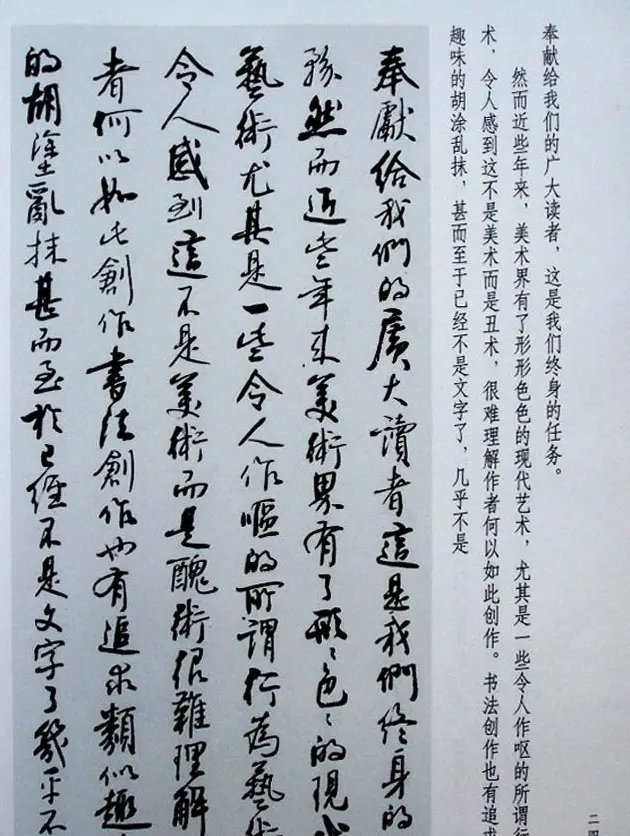 奉献给我们的广大读者，这是我们终身的任务。
然而近些年来，美术界有了形形色色的现代艺术，尤其是一些令人作呕的所谓行
术，令人感到这不是美术而是丑术，很难理解作者何以如此创作。书法创作也有追求
趣味的胡涂乱抹，甚而至于已经不是文字了，几乎不是
奉獻給我們的廣大讀者這是我們終身的
務然而近些年來美術界有了形々色々的現代
藝術尤其是一些令人作嘔的所謂行為藝術
令人感到這不是美術而是醜術很難理解
者何以如此創作書法創作也有追求類似趣
的胡塗亂抹甚而至於已經不是文字了幾乎不
二四